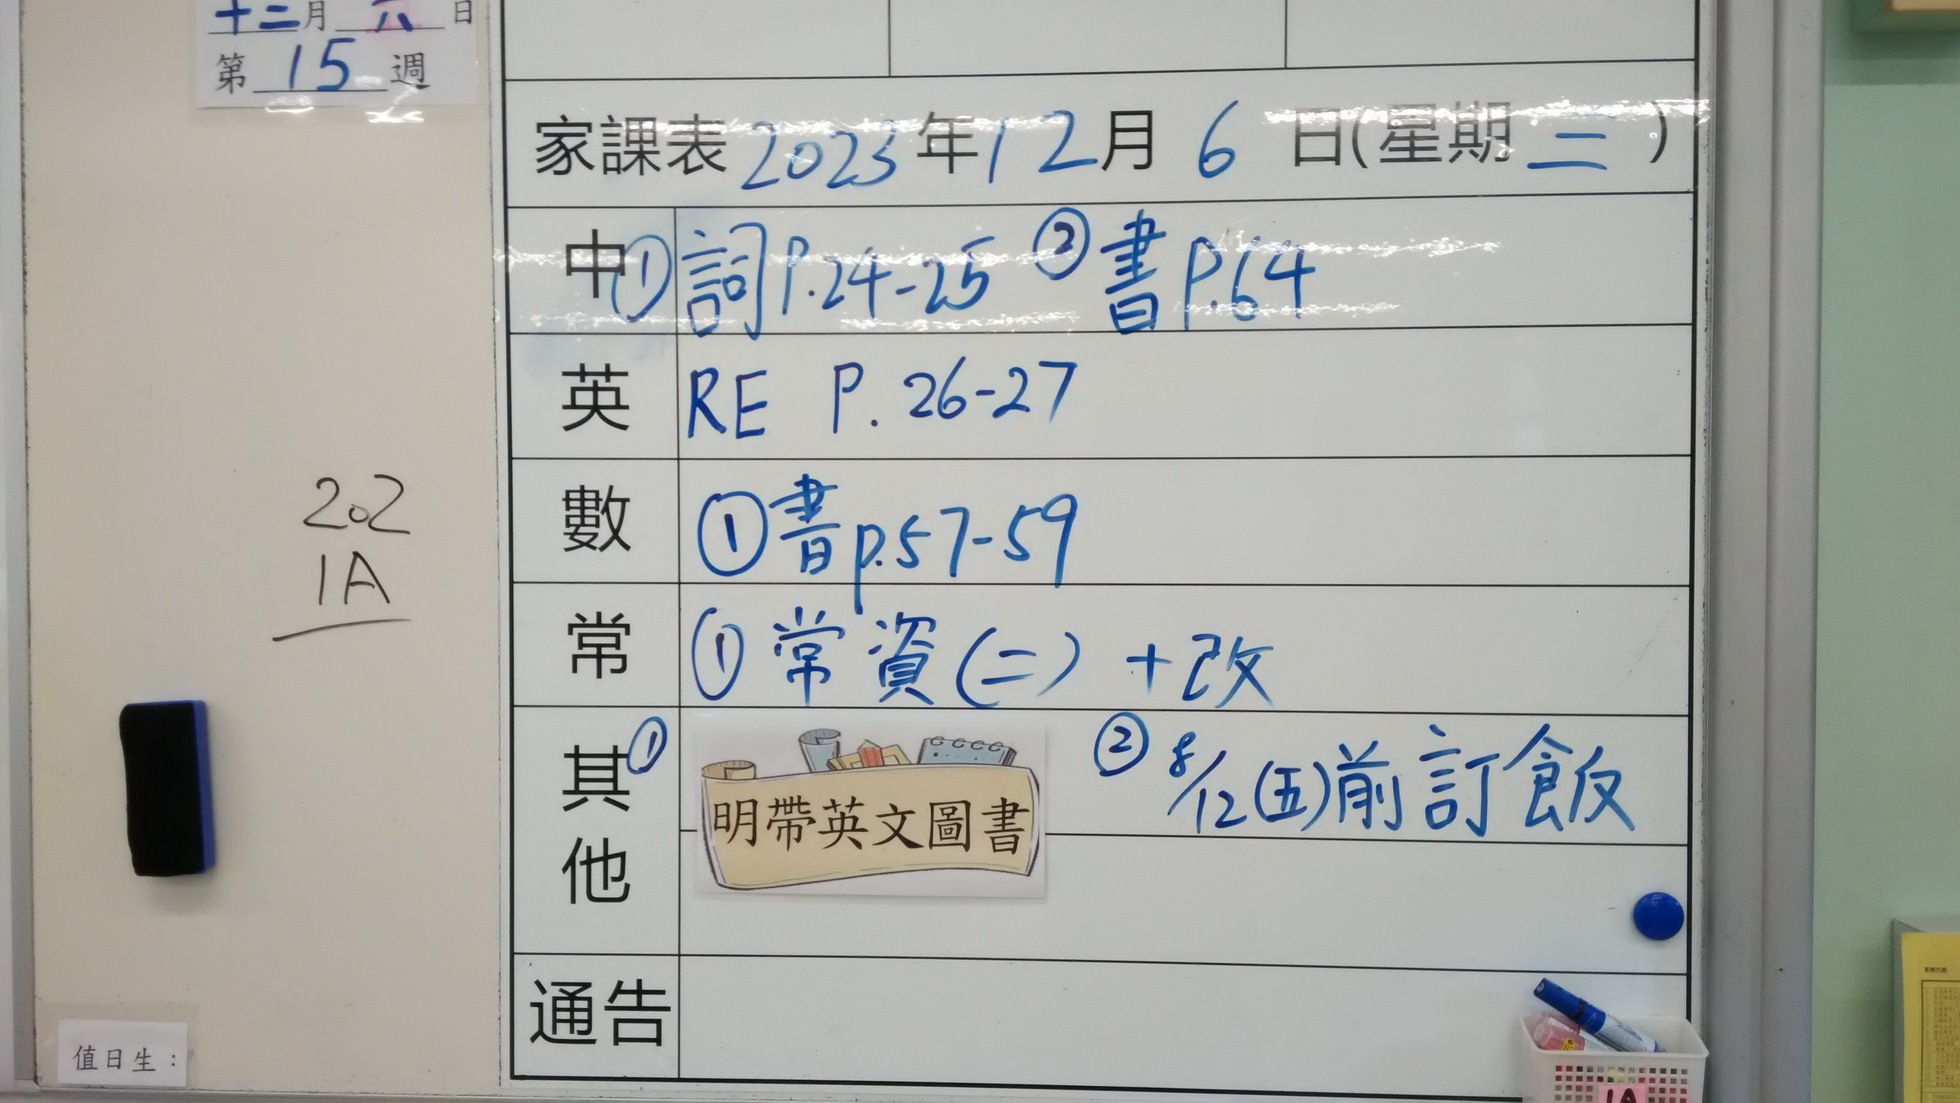 十二月六日
第15週
家課表2023年12月6日(星期三)
中①詞P.24-25 ②書P.64
英 RE P. 26-27
數 ①書p.57-59
202
1A
常 ①常資(二)+改
其他① 明帶英文圖書 ②8/12(五)前訂飯
通告
值日生：
1A